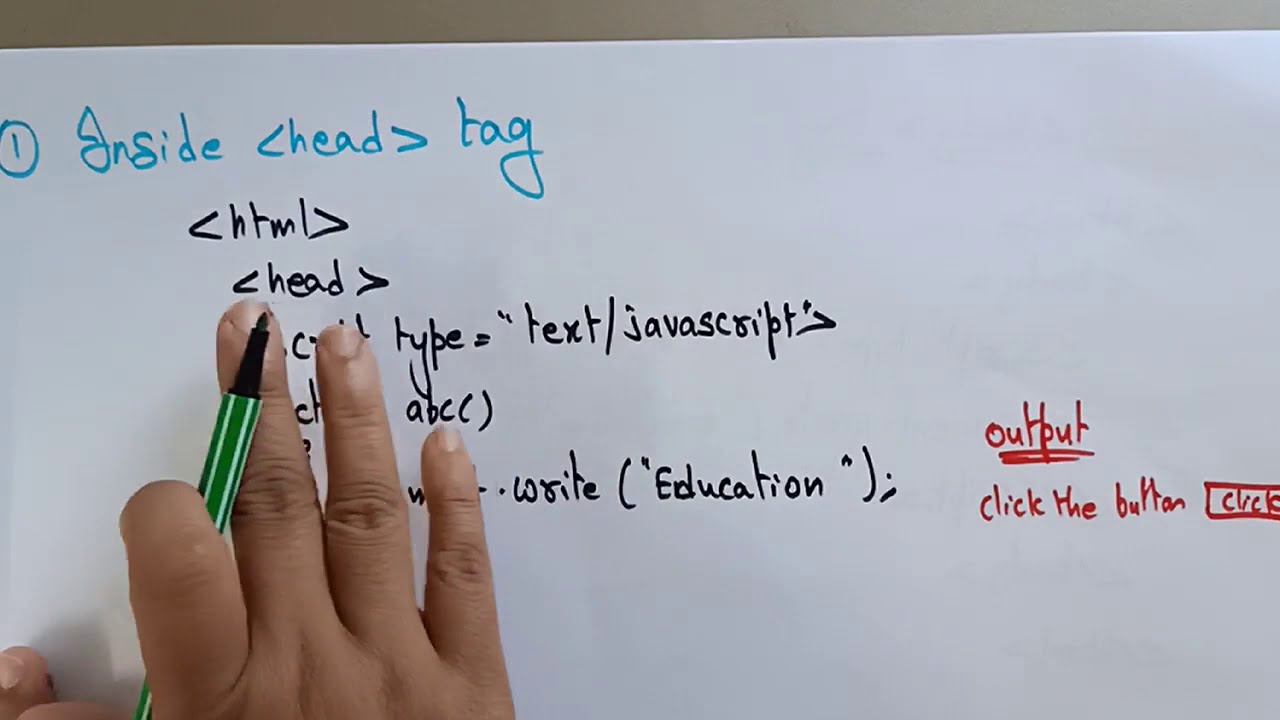 ① Inside <head> tag
<html>
<head>
type="text/javascript">
abc()
.write ("Education ");
output
click the button click